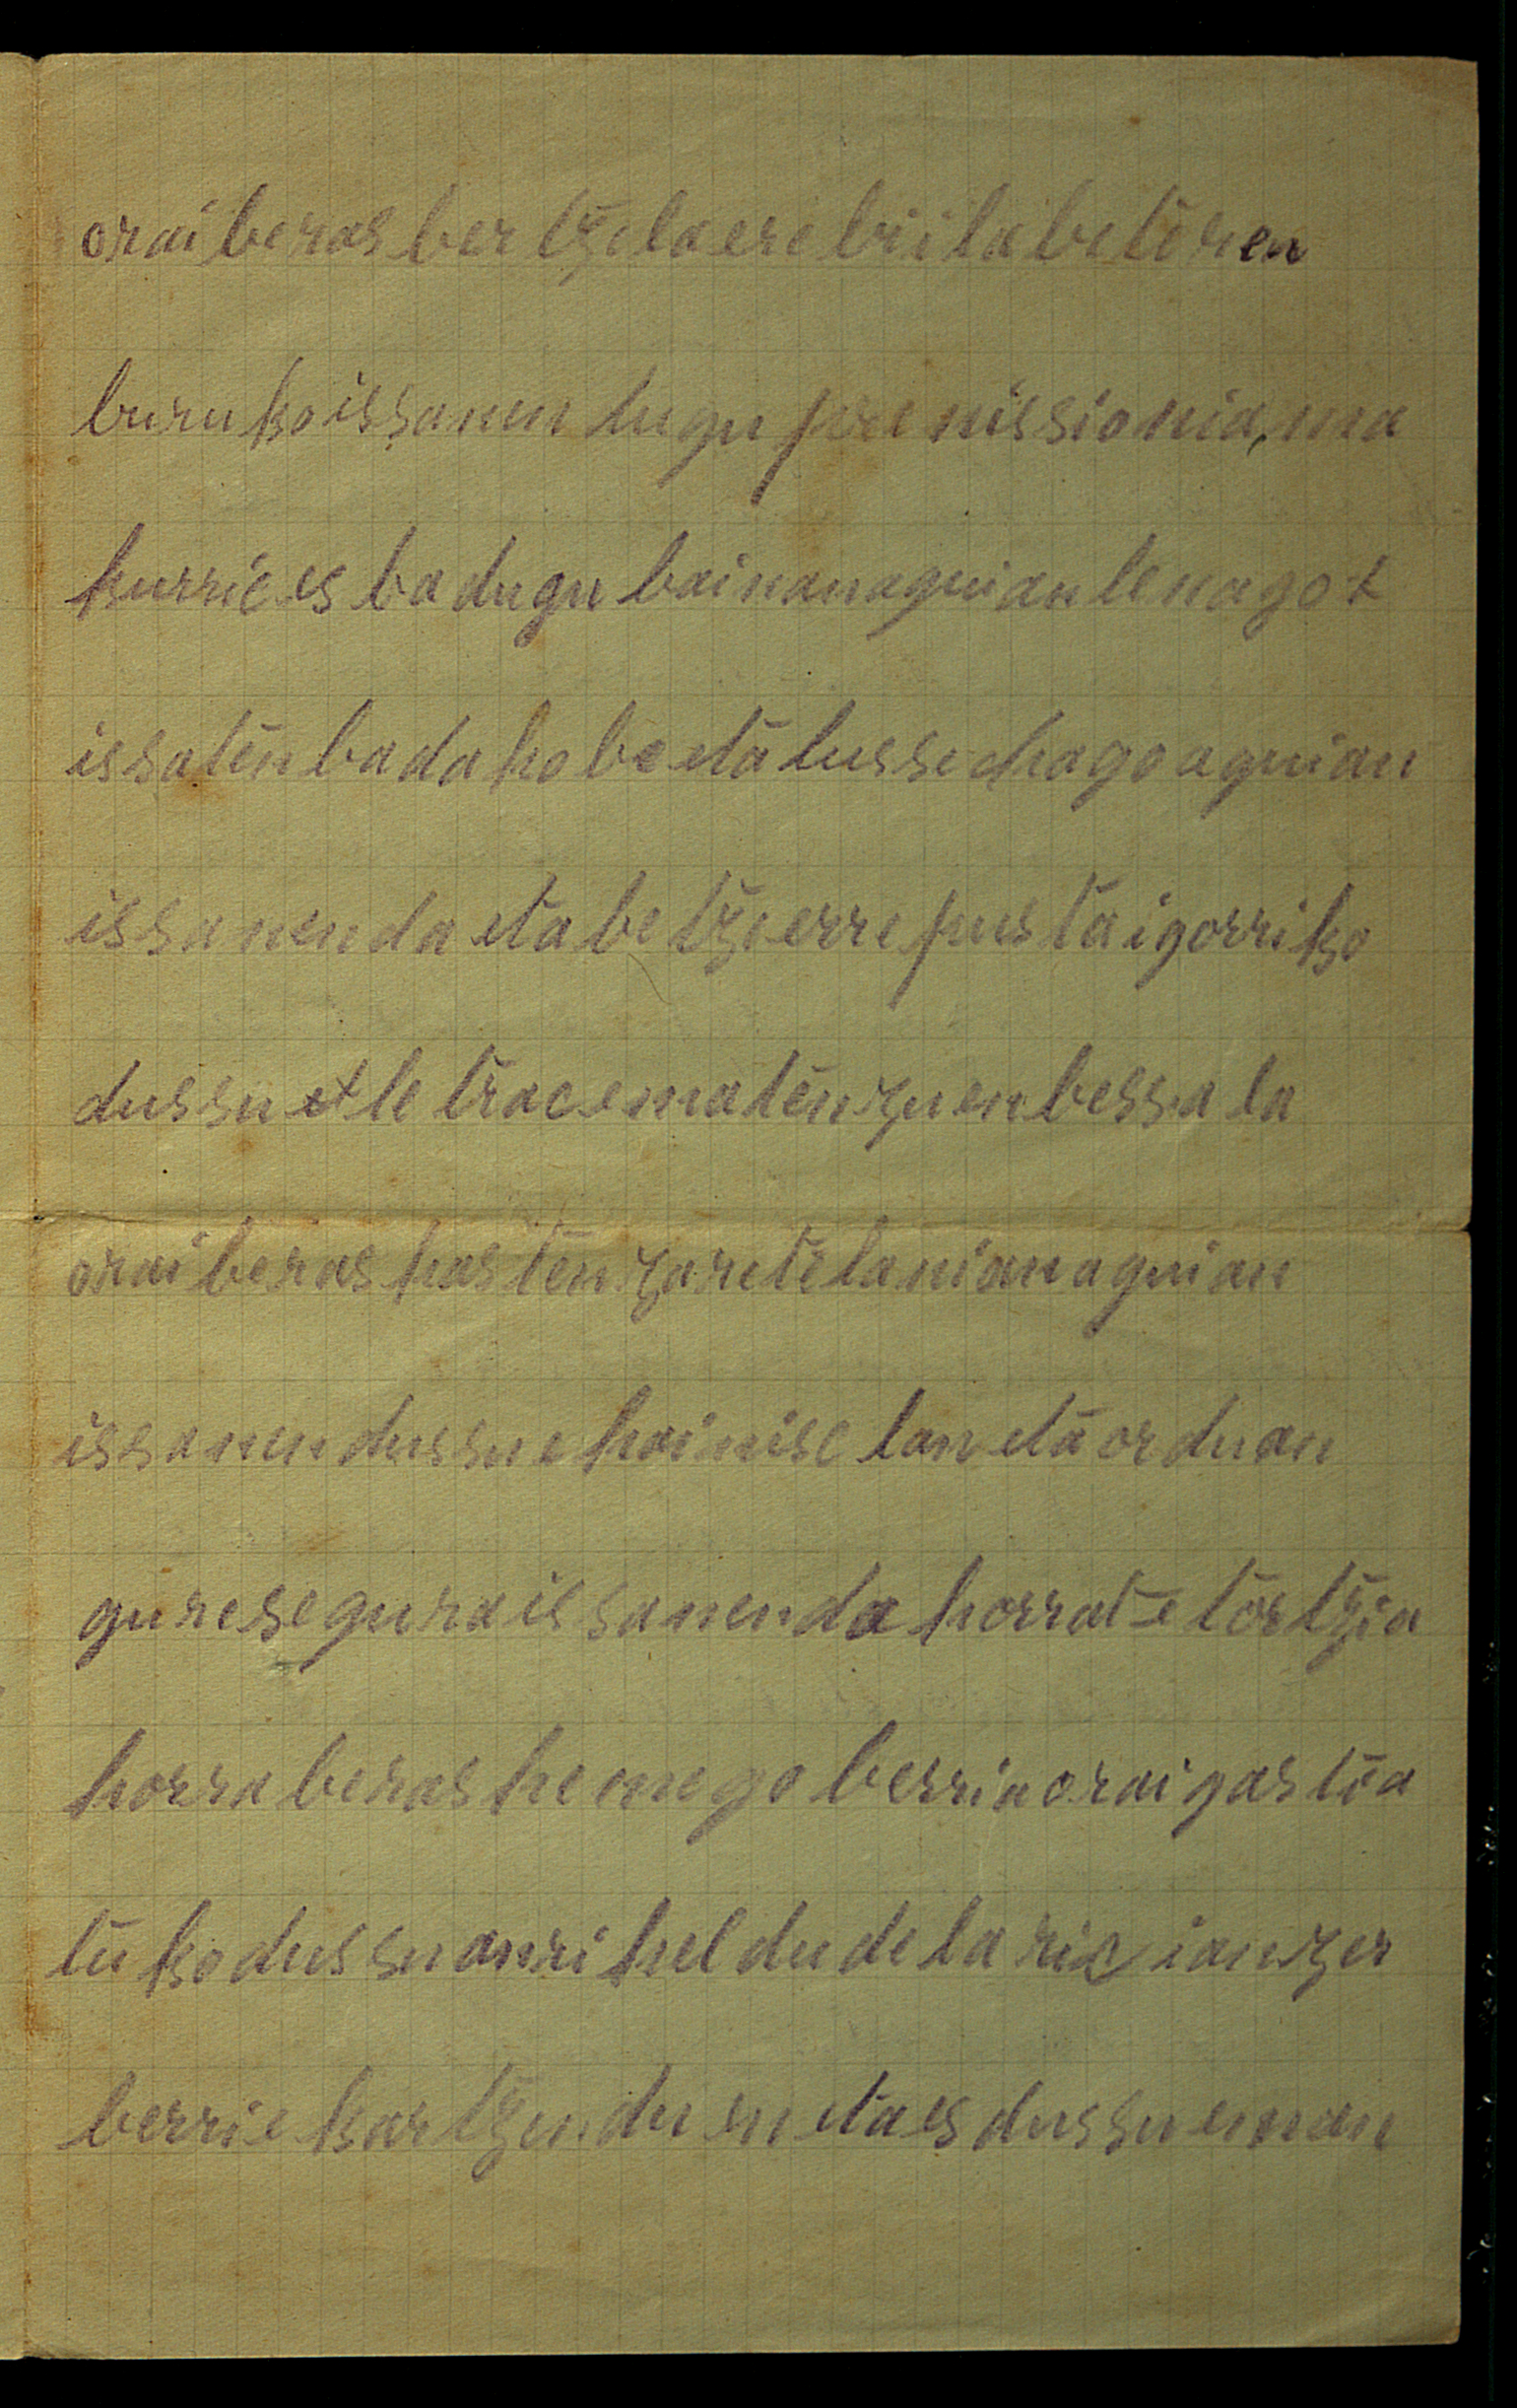 orai beras bertzela ere bi ilabeteren
buruko issanen tugu premissionia, ma
kurric es badugu bainan aguian lenagot
issaten bada hobe eta lussechago aguian
issanen da eta betzi errepusta igorriko
dussu et letrac ematen zuen bessala
orai beras hasten zarete lanian aguian
issanen dussue hainise lan eta orduan
gure segura issanen da horrat etortzia
horra beras hemego berria orai gastöa
tuko dussu anri heldu delaric ian zer
berri ekartzen duen eta es dussu eman